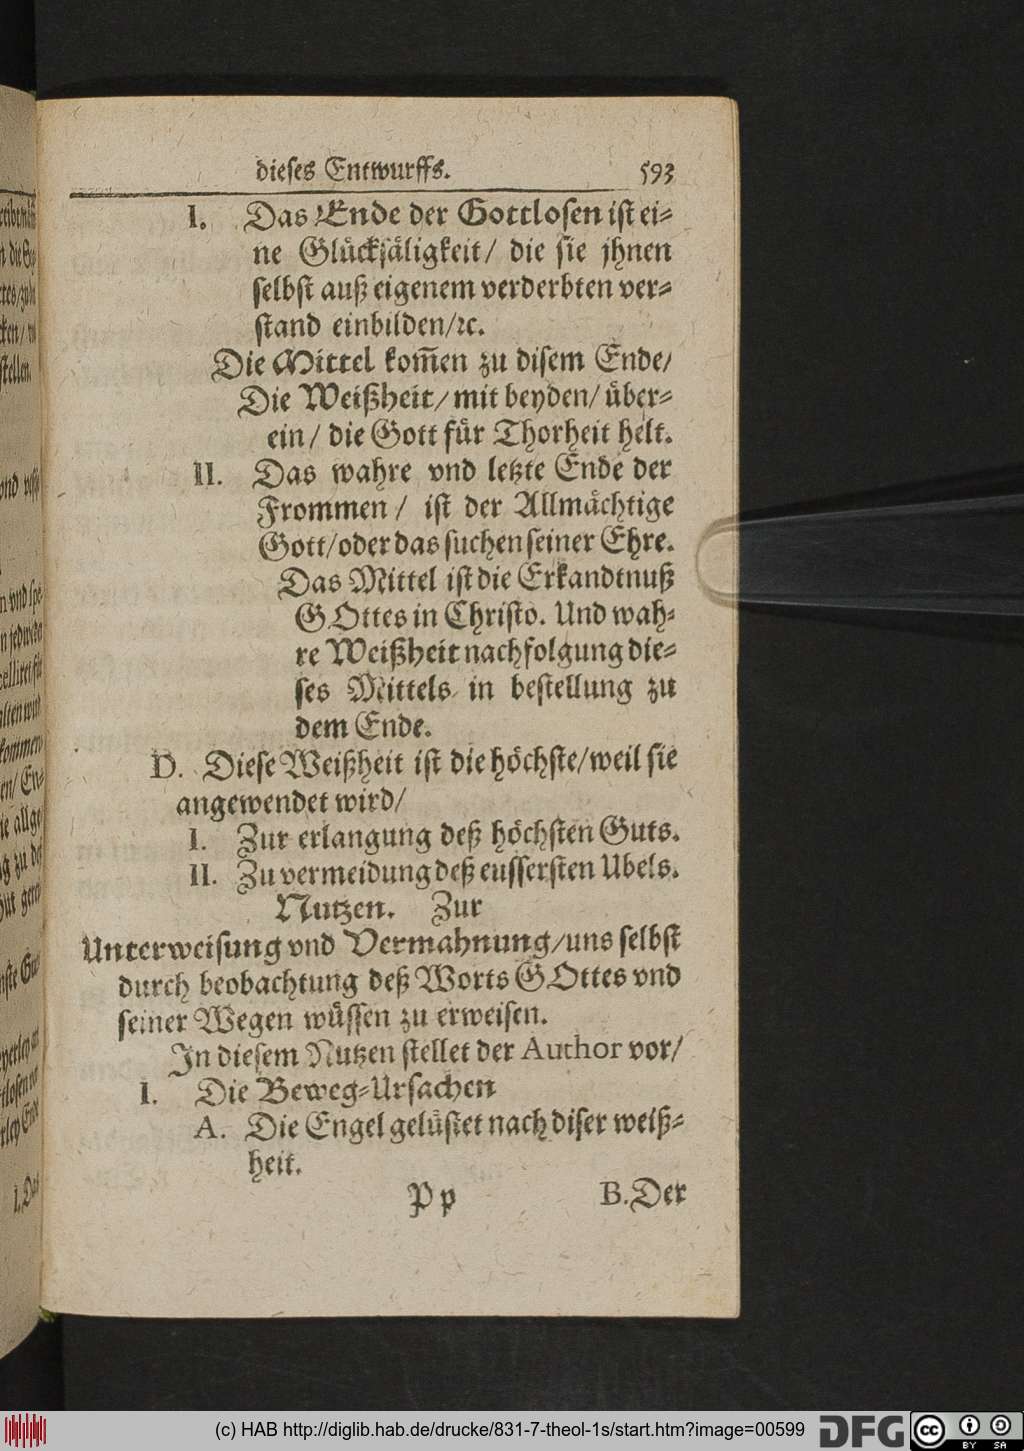 dieses Entwurffs. 593
I. Das Ende der Gottlosen ist ei⸗
ne Glückſäligkeit/ die ſie jhnen
ſelbſt auß eigenem verderbten ver⸗
ſtand einbilden/ꝛc.
Die Mittel kom̃en zu diſem Ende/
Die Weißheit/ mit beyden/ über⸗
ein/ die Gott für Thorheit helt.
II. Das wahre vnd letzte Ende der
Frommen/ iſt der Allmächtige
Gott/oder das ſuchen ſeiner Ehre.
Das Mittel iſt die Erkandtnuß
GOttes in Chriſto. Und wah⸗
re Weißheit nachfolgung die⸗
ſes Mittels in beſtellung zu
dem Ende.
D. Dieſe Weißheit iſt die höchſte/weil ſie
angewendet wird/
I. Zur erlangung deß höchſten Guts.
II. Zu vermeidung deß euſſerſten Ubels.
Nutzen. Zur
Unterweiſung vnd Vermahnung/uns ſelbſt
durch beobachtung deß Worts GOttes vnd
ſeiner Wegen wüſſen zu erweiſen.
In dieſem Nutzen ſtellet der Author vor/
I. Die Beweg⸗Urſachen
A. Die Engel gelüſtet nach diſer weiß⸗
heit.
Pp B. Der
(c) HAB http://diglib.hab.de/drucke/831-7-theol-1s/start.htm?image=00599
DFG
cc BY SA